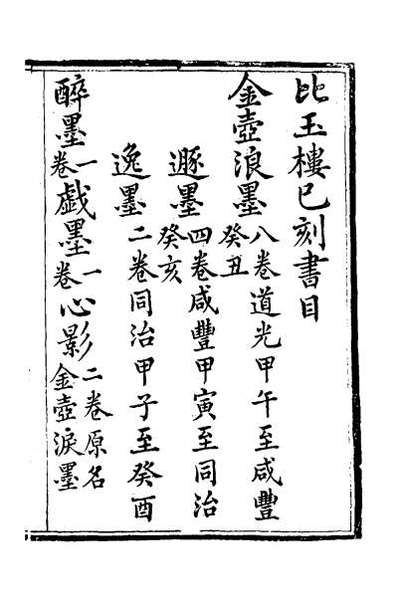 比玉樓已刻書目
金壺浪墨八卷道光甲午至咸豐癸丑
遯墨四卷咸豐甲寅至同治癸亥
逸墨二卷同治甲子至癸酉
醉墨一卷戯墨一卷心影二卷原名金壺淚墨